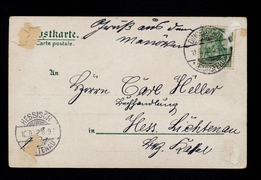 Postkarte.
Carte postale.
Gruß aus dem
Manöver
An
Herrn Carl Heller
Buchhandlung
in Hess. Lichtenau
Bez. Kassel
HESSISCH